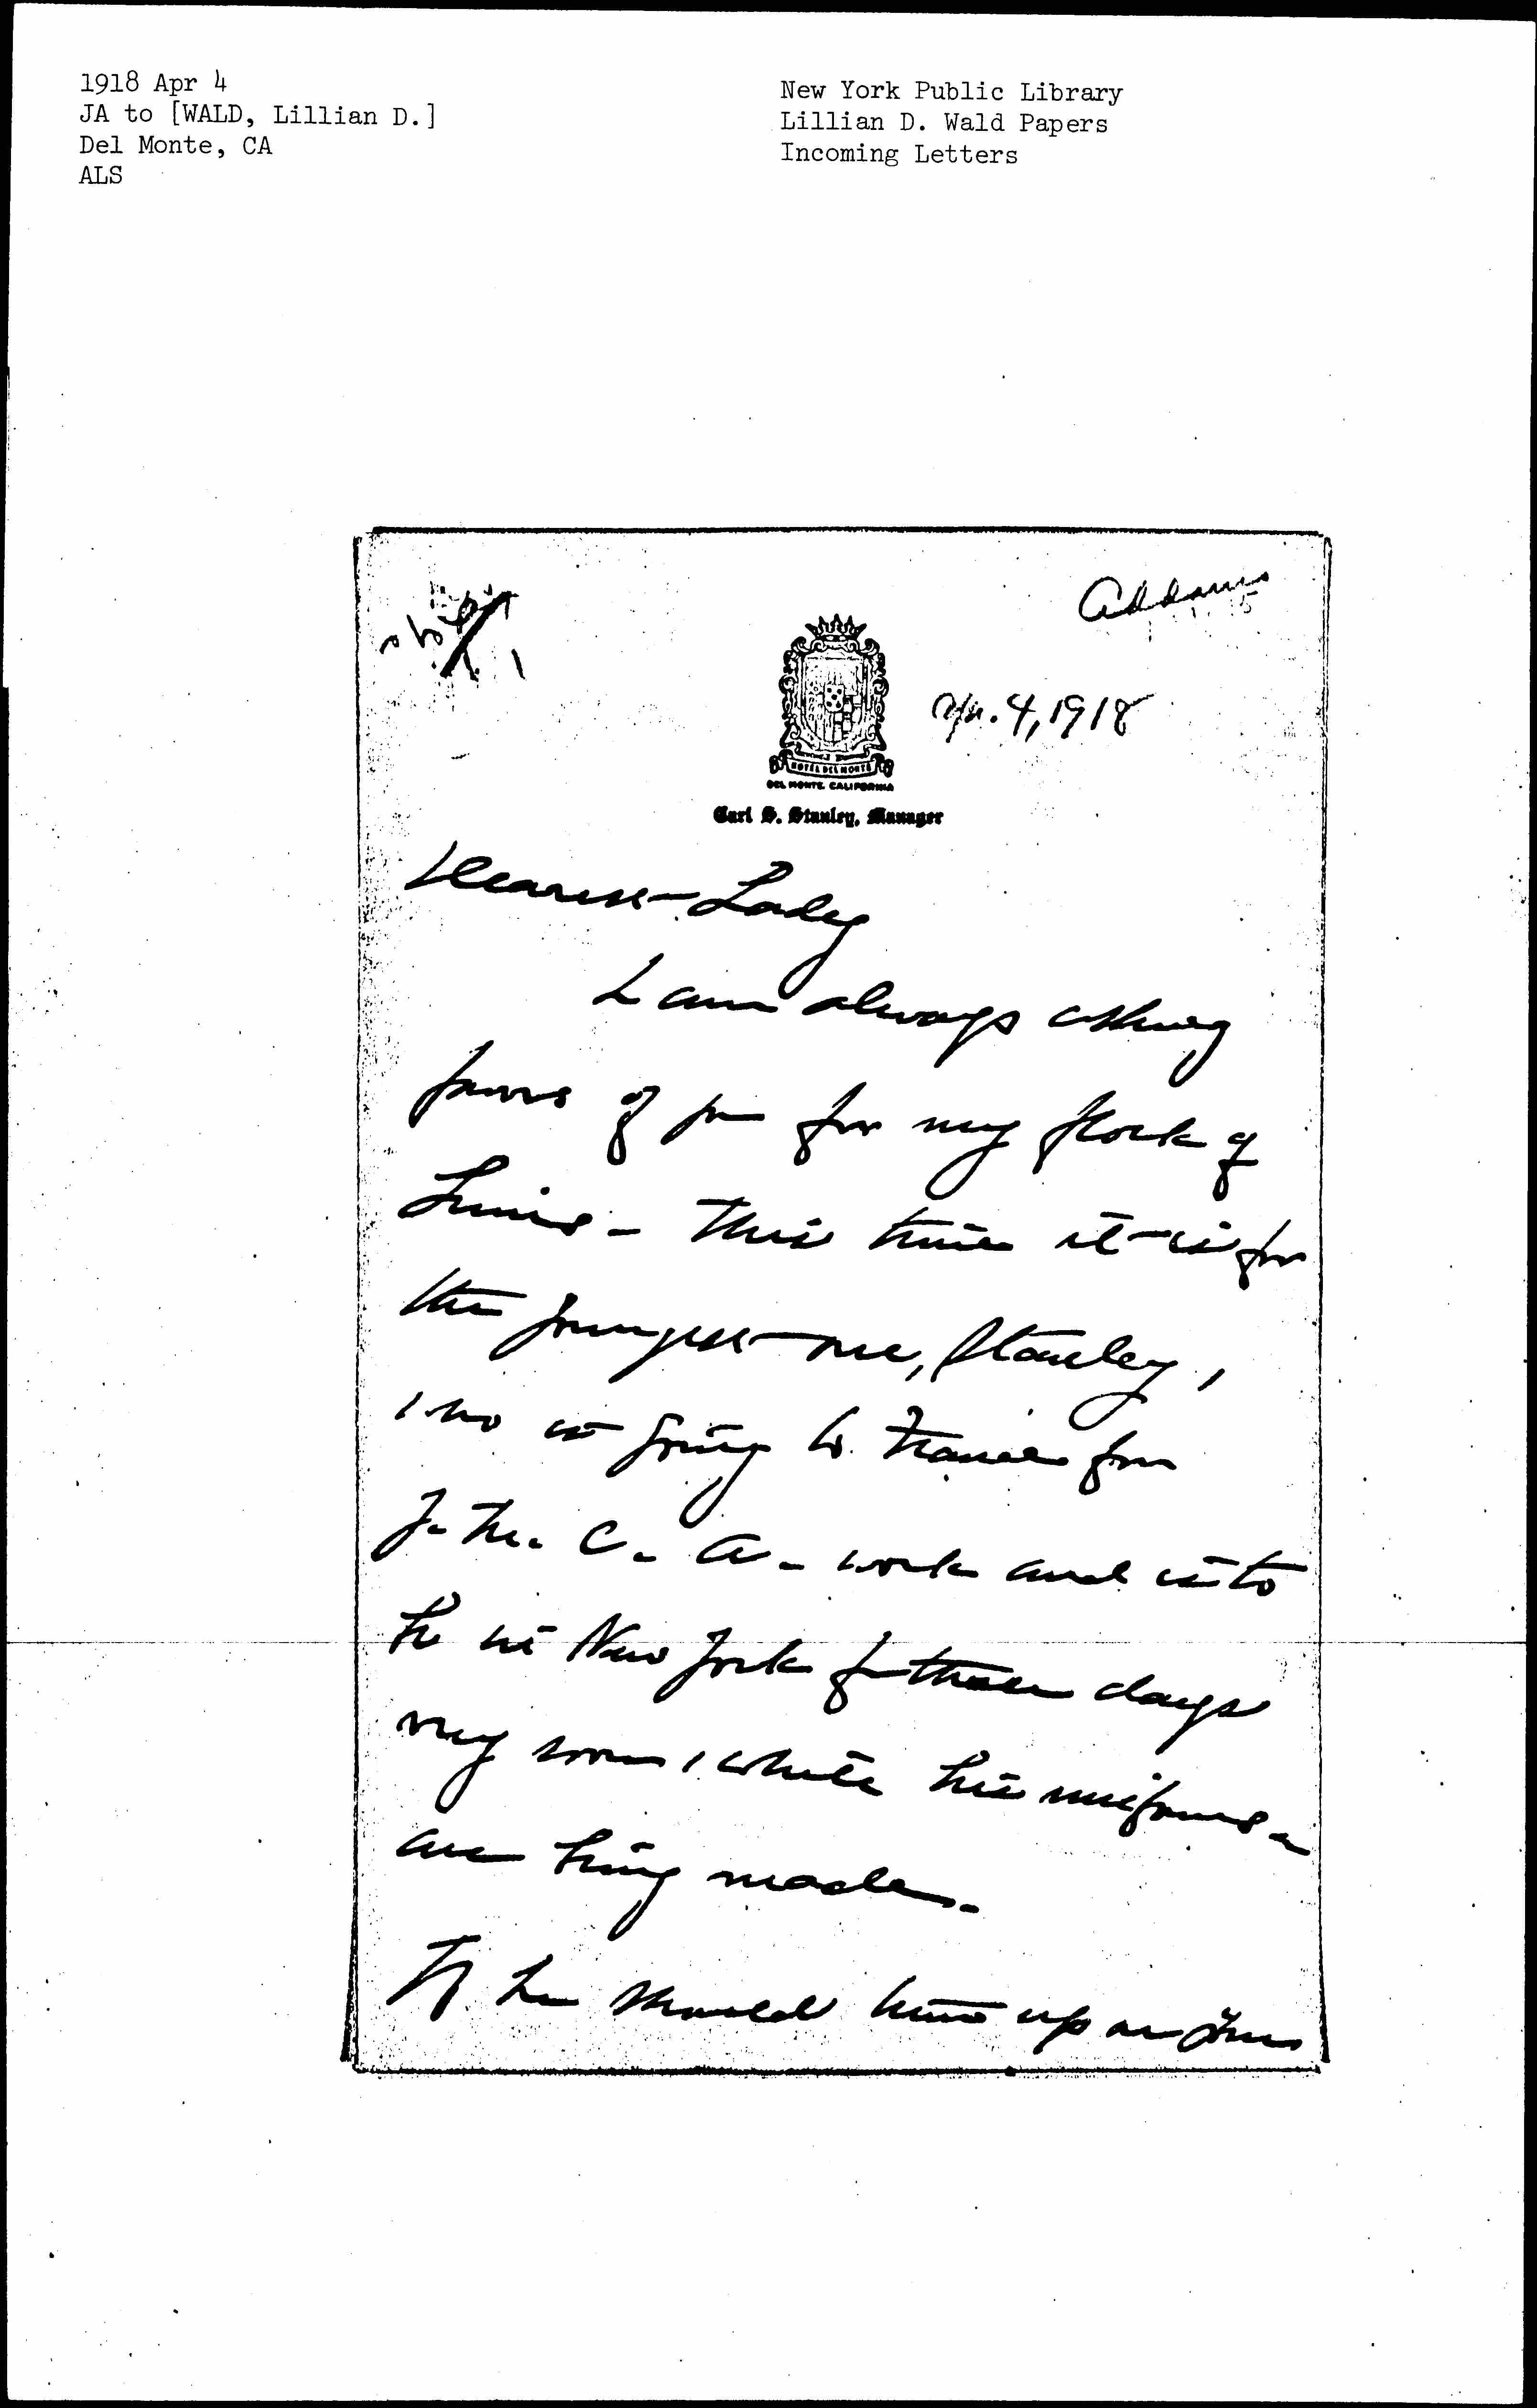 1918 Apr 4
JA to [WALD, Lillian D.]
Del Monte, CA
ALS
New York Public Library
Lillian D. Wald Papers
Incoming Letters
Addams
Apr. 4, 1918
HOTEL DEL MONTE
DEL MONTE, CALIFORNIA
Carl S. Stanley, Manager
Dearest Lady
I am always asking
favors of you for my flock of
Linns - This time it is for
the youngest one, Stanley,
who is going to France for
Y. M. C. A. work and is to
be in New York for three days
very soon while his uniforms
are being made.
If he should turn up on your